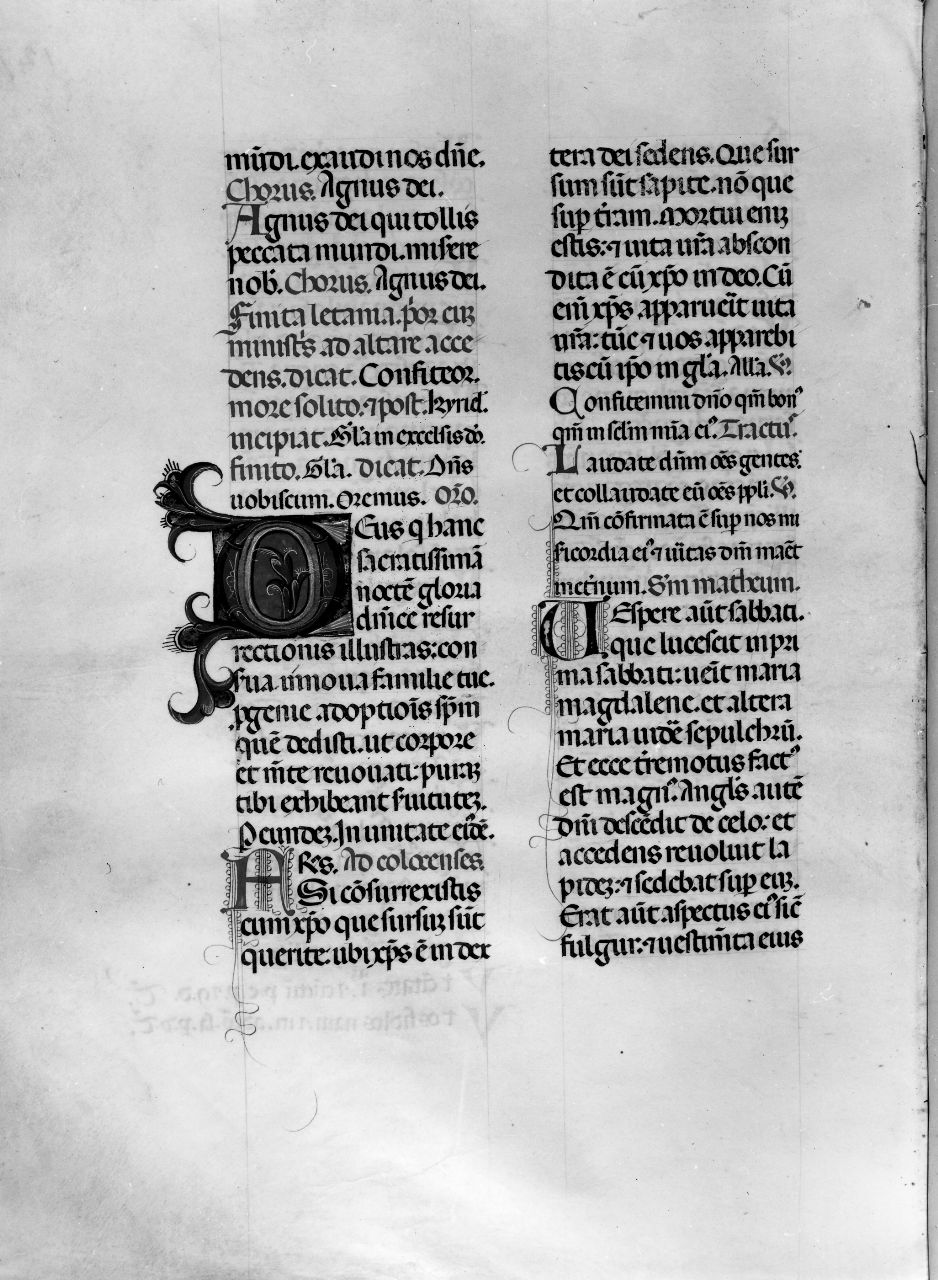 mūdi. exaudi nos dn̄e.
Chorus. Agnus dei.
Agnus dei qui tollis
peccata mundi. misere
nob̄. Chorus. Agnus dei.
Finita letania. p̄or cuȝ
minist̄s ad altare acce
dens. dicat. Confiteor.
more solito. ⁊ post. kyriel̄.
incipiat. Gl̄a in excelsis dō.
finito. Gl̄a. dicat. Dn̄s
uobiscum. Oremus. Or̄o.
DEus q hanc
sacratissimā
noctē gloria
dn̄ice resur
rectionis illustras: con
serua in noua familie tue.
ꝓgenie adoptiōis sp̄m
quē dedisti. ut corpore
et m̄te renouati: puraȝ
tibi exhibeant s̄uituteȝ.
P eundeȝ. In unitate eiḋē.
FRēs. Ad colocenses
Si cōsurrexistis
cum xp̄o que sursuȝ sūt
querite: ubi xp̄s ē in dex
tera dei sedens. Que sur
sum sūt sapite. nō que
sup t̄ram. Mortui eniȝ
estis: ⁊ uita ur̄a abscon
dita ē cū xp̄o in deo. Cū
eni xp̄s apparueīt uita
ur̄a: tūc ⁊ uos apparebi
tis cū ip̄o in gl̄a. All̄a. V̄.
Confitemini dn̄o qm̄ bonꝰ
qm̄ in sclm̄ mīa eiꝰ. Tractuꝰ.
Laudate dn̄m oēs gentes.
et collaudate eū oēs ppl̄i. V̄.
Qm̄ cōfirmata ē sup nos mi
sericordia eiꝰ ⁊ ūitas dn̄i maēt
in et̄num. S'm matheum.
UEspere aūt sabbati.
que lucescit in pri
ma sabbati: uēit maria
magdalene. et altera
maria uidē sepulchrū.
Et ecce t̄remotus factꝰ
est magnꝰ. Angl̄s autē
dn̄i descēdit de celo: et
accedens reuoluit la
pideȝ: ⁊ sedebat sup euȝ.
Erat aūt aspectus eiꝰ sic̄
fulgur: ⁊ uestim̄ta eius